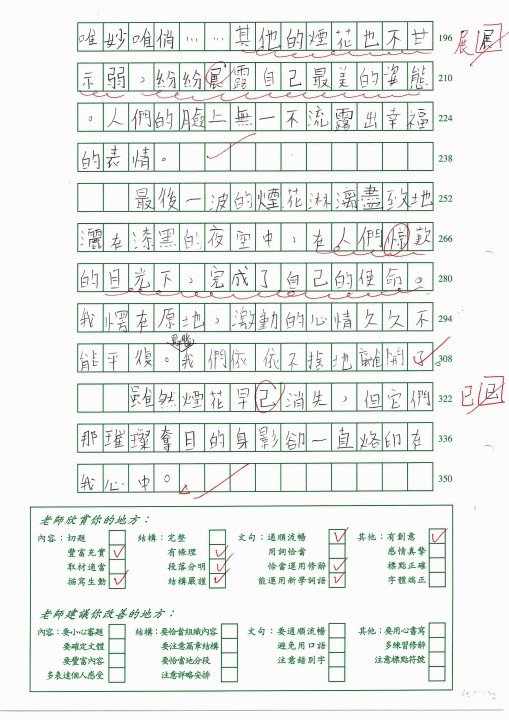 唯妙唯俏……其他的煙花也不甘 196 展 展
示弱，紛紛展露自己最美的姿態 210
。人們的臉上無一不流露出幸福 224
的表情。 238
最後一波的煙花淋漓盡致地 252
灑在漆黑的夜空中，在人們 歡 266
的目光下，完成了自己的使命。 280
我愣在原地，激動的心情久久不 294
能平復。我們依依不捨地離開了。 308
雖然煙花早已消失，但它們 322 已 已
那璀璨奪目的身影卻一直烙印在 336
我心中。 350
老師欣賞你的地方：
內容：切題 結構：完整 文句：通順流暢 其他：有創意
豐富充實 有條理 用詞恰當 感情真摯
取材適當 段落分明 恰當運用修辭 標點正確
描寫生動 結構嚴謹 能運用新學詞語 字體端正
老師建議你改善的地方：
內容：要小心審題 結構：要恰當組織內容 文句：要通順流暢 其他：要用心書寫
要確定文體 要注意篇章結構 避免用口語 多練習修辭
要豐富內容 要恰當地分段 注意錯別字 注意標點符號
多表達個人感受 注意詳略安排